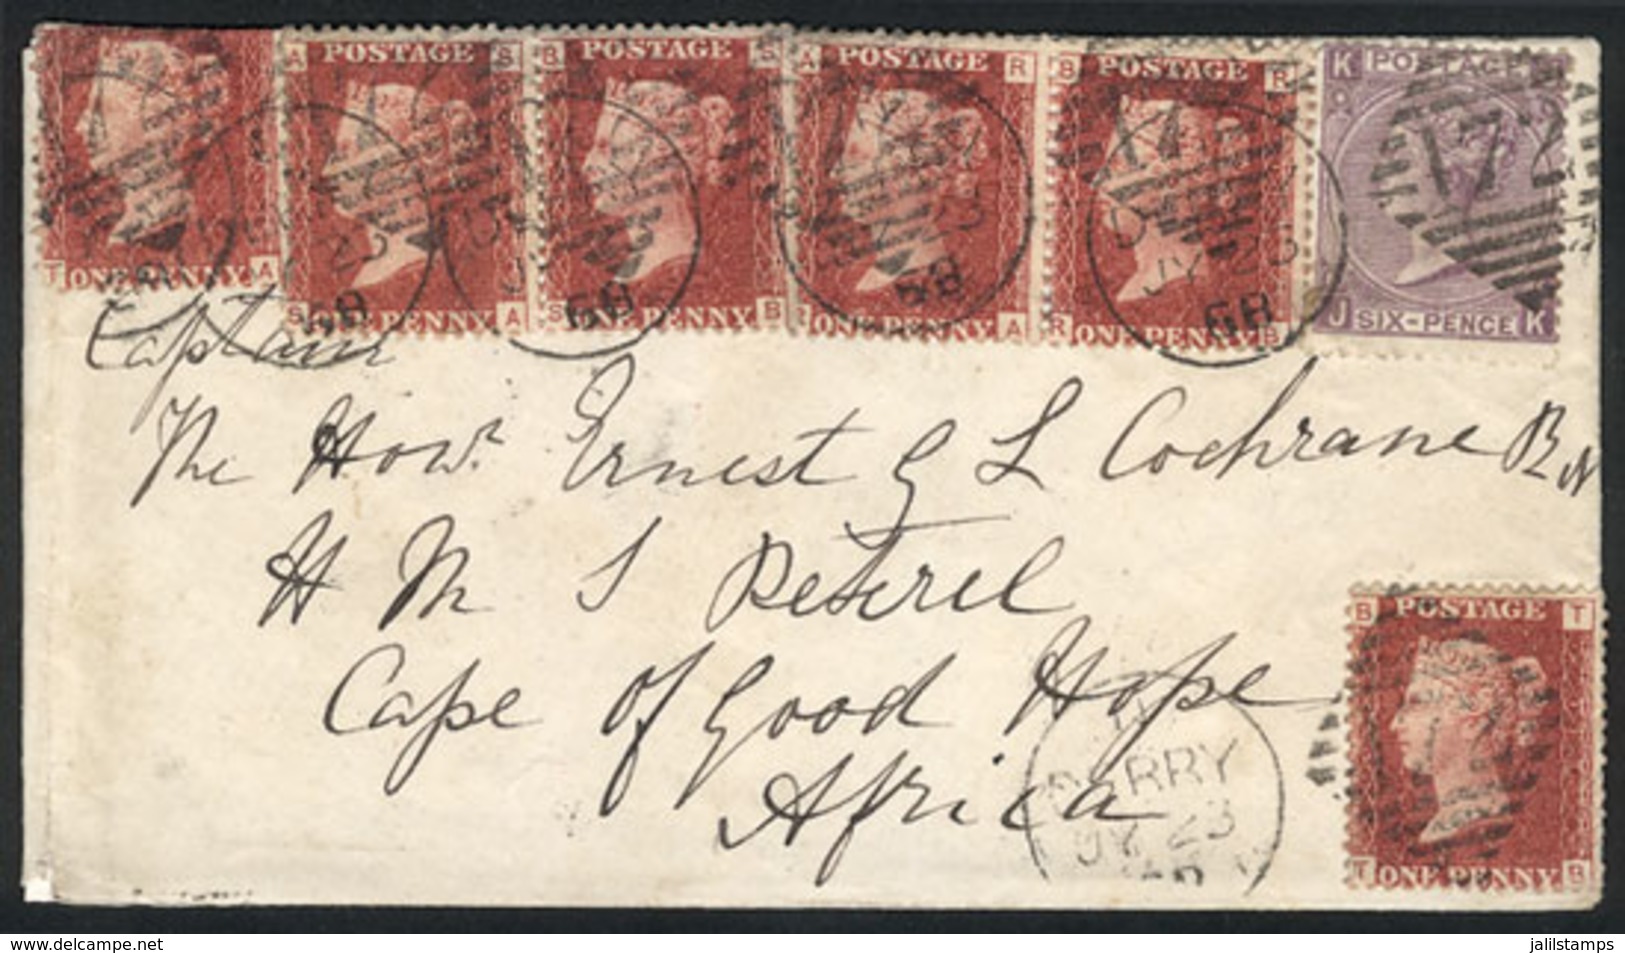 A POSTAGE S
B POSTAGE S
A POSTAGE R
B POSTAGE R
K POSTAGE
172
T ONE PENNY A
S ONE PENNY A
S ONE PENNY B
R ONE PENNY A
R ONE PENNY B
J SIX-PENCE K
68
68
68
JY 23
68
Captain
The Honr. Ernest G L Cochrane R N
H M S Peterel
Cape of Good Hope
Africa
DERRY
JY 23
B POSTAGE T
T ONE PENNY B
delcampe.net
jalilstamps